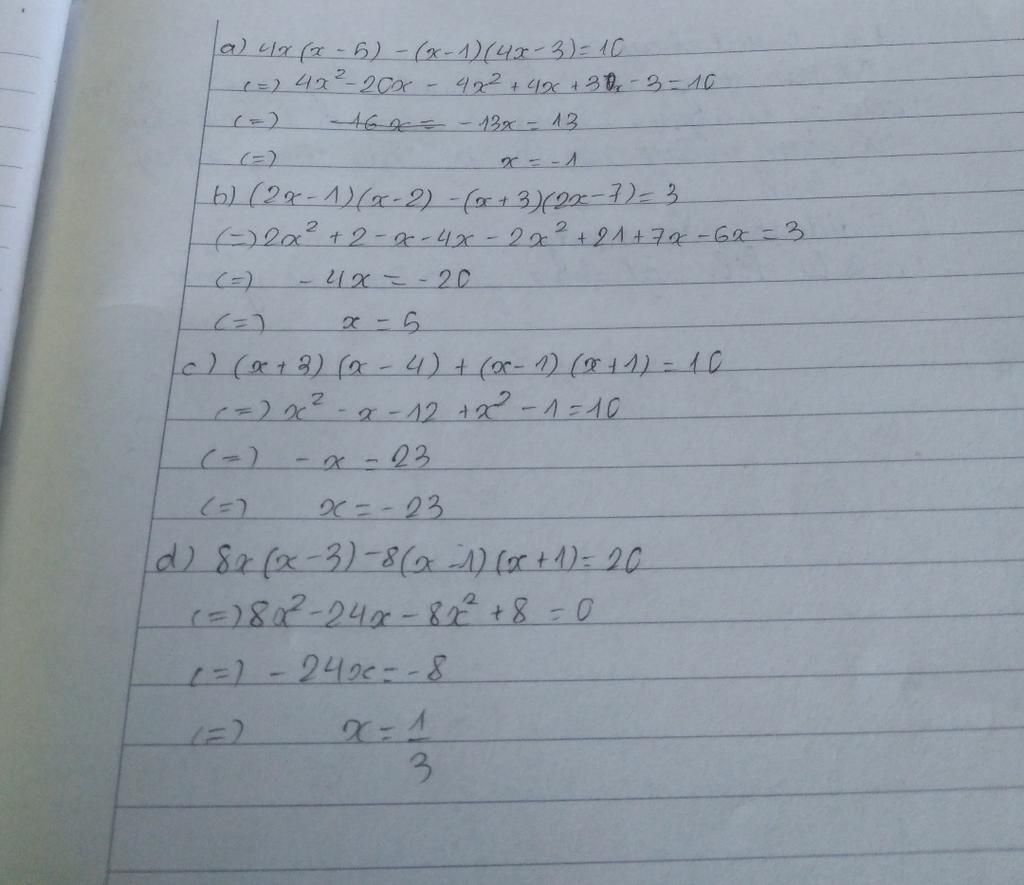 a) 4x(x - 5) - (x-1)(4x-3)=10
(=) 4x² - 20x - 4x² + 4x + 3x - 3 = 10
(=) -16x = -13x = 13
(=) x = -1
b) (2x-1)(x-2) -(x+3)(2x-7)= 3
(=) 2x² + 2 - x - 4x - 2x² + 21 + 7x - 6x = 3
(=) - 4x = - 20
(=) x = 5
c) (x+3) (x - 4) + (x-1) (x+1) = 10
(=) x² - x - 12 + x² - 1 = 10
(=) - x = 23
(=) x = - 23
d) 8x(x-3) - 8(x-1) (x+1) = 20
(=) 8x² - 24x - 8x² + 8 = 0
(=) - 24x = - 8
(=) x = 1/3